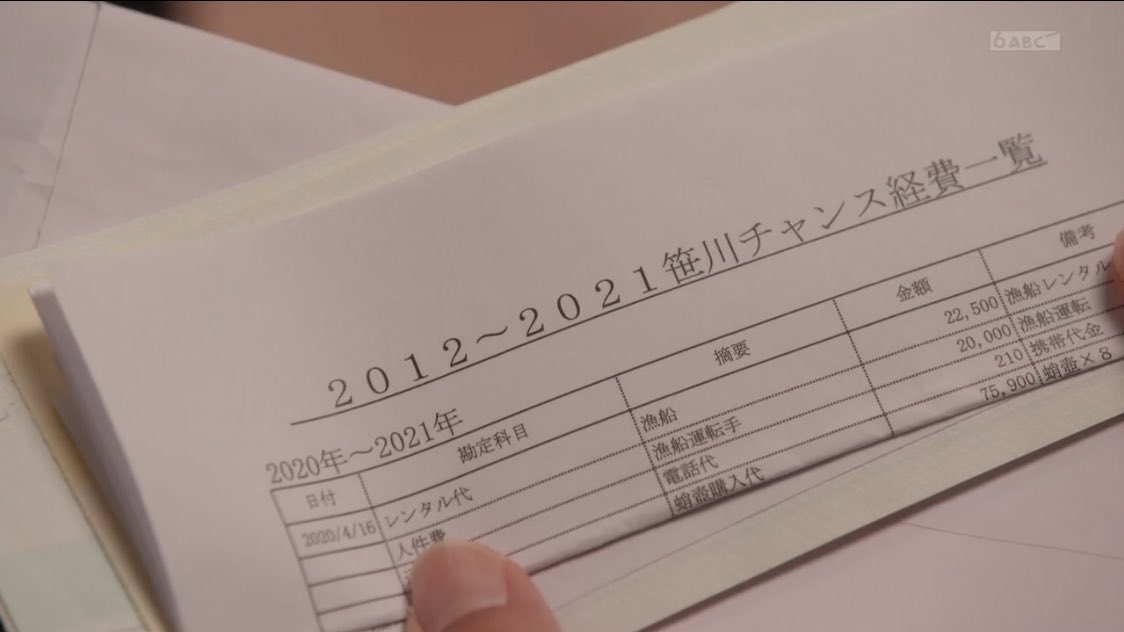 6ABC
2012～2021笹川チャンス経費一覧
2020年～2021年
日付 勘定科目 摘要 金額 備考
2020/4/16 レンタル代 漁船 22,500 漁船レンタル
人件費 漁船運転手 20,000 漁船運転
電話代 210 携帯代金
蛸壺購入代 75,900 蛸壺×8